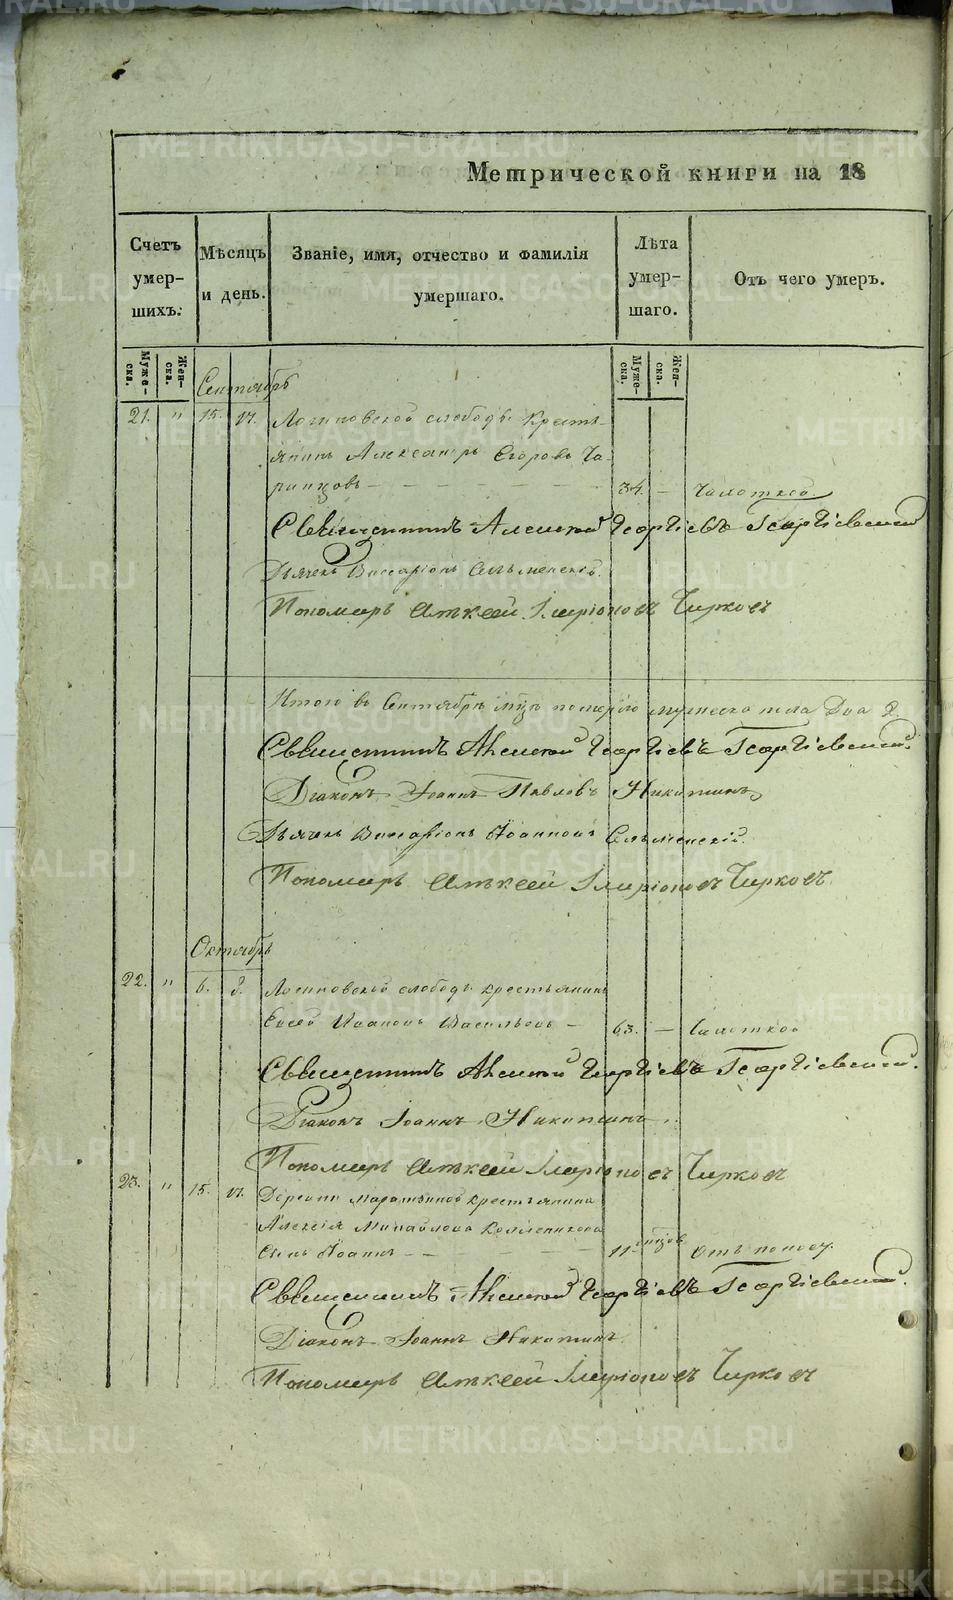 Метрической книги на 18
Счетъ умер-шихъ.
Мѣсяцъ и день.
Званіе, имя, отчество и фамилія умершаго.
Лѣта умер-шаго.
Отъ чего умеръ.
Муже-ска.
Жен-ска.
Муже-ска.
Жен-ска.
Сентябрь
21. " 15. 17. Логиновской слободы Кресть-
янинъ Александръ Егоровъ
34. — Чахоткой
Священникъ Алексей Георгіевъ Георгіевский
Дьячекъ Виссаріонъ Сельменскій.
Пономарь Алексей Иларіоновъ Чирковъ
Итого въ Сентябрѣ мцѣ померло мужеска пола Два 2.
Священникъ Алексей Георгіевъ Георгіевский.
Діаконъ Іоаннъ Павловъ Никитинъ
Дьячекъ Виссаріонъ Іоанновъ Сельменскій.
Пономарь Алексей Иларіоновъ Чирковъ.
Октябрь
22. " 6. 8. Логиновской слободы крестьянинъ
Ивановъ Васильевъ — 63. — Чахоткой
Священникъ Алексей Георгіевъ Георгіевский.
Діаконъ Іоаннъ Никитинъ.
Пономарь Алексей Иларіоновъ Чирковъ
23. " 15. 17. Деревни крестьянина
Алексія Михайлова
Сынъ Іоаннъ — — 11 мцовъ Отъ поносу.
Священникъ Алексей Георгіевъ Георгіевский.
Діаконъ Іоаннъ Никитинъ
Пономарь Алексей Иларіоновъ Чирковъ
METRIKI.GASO-URAL.RU